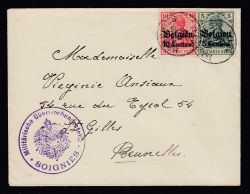 Belgien
10 Centimes
Belgien
5 Centimes
Mademoiselle
Virginie Ansiaux
54 rue du Tyrol 54
St Gilles
Bruxelles
Militärische Überwachungsstelle
* SOIGNIES *